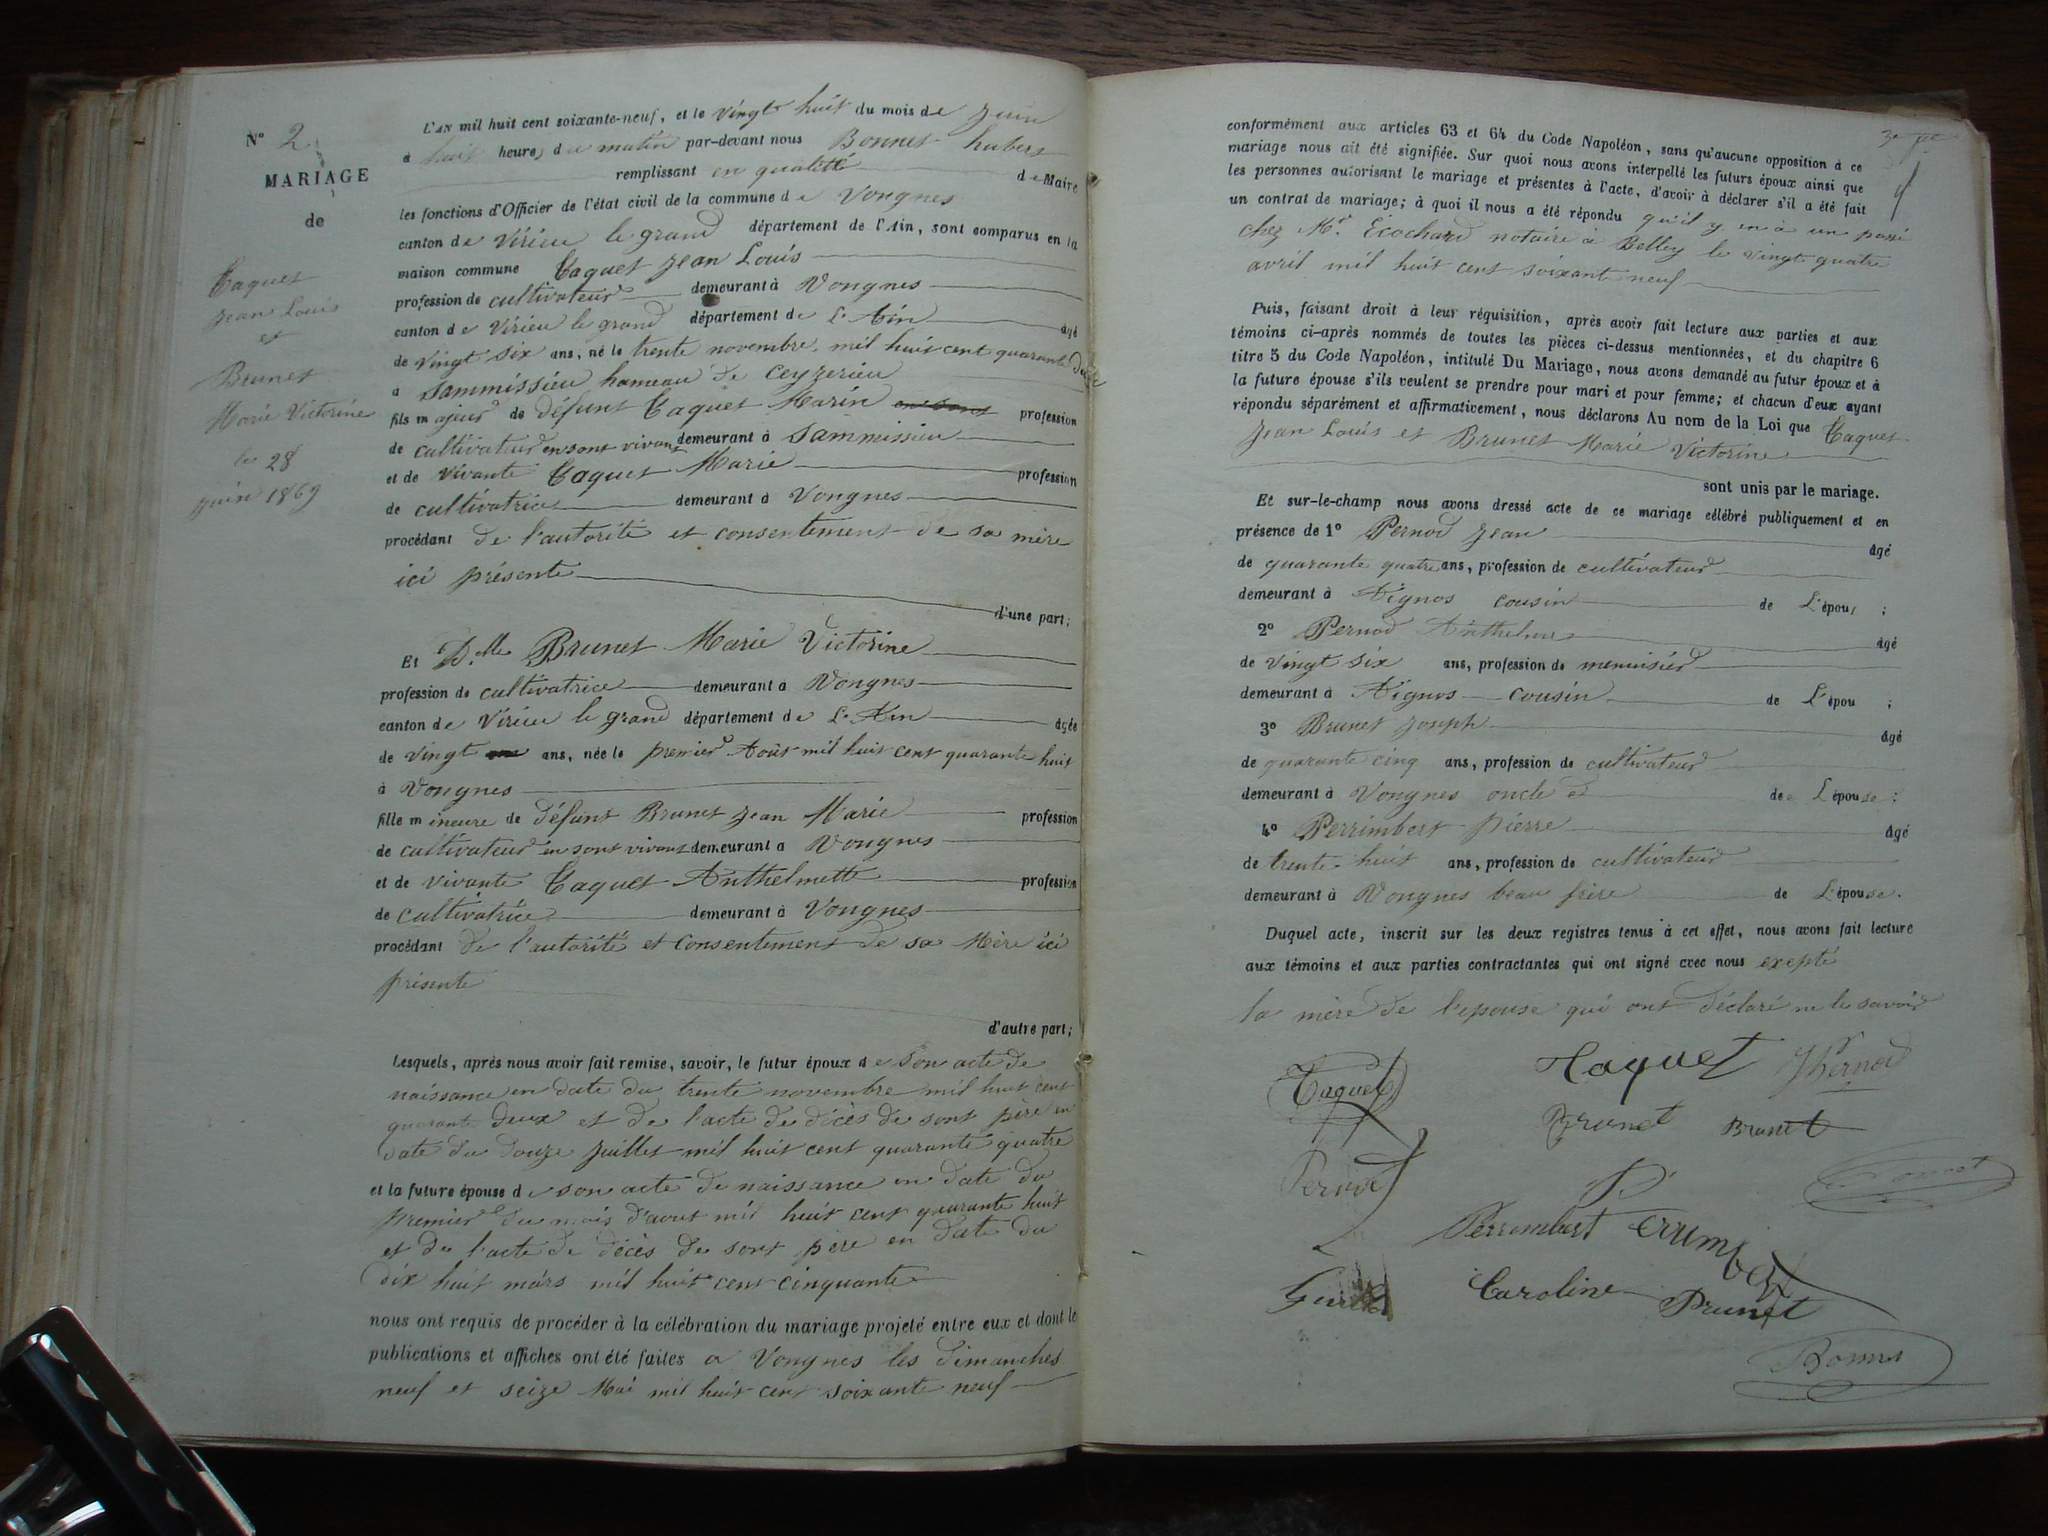 N° 2
MARIAGE
de
Caquet
Jean Louis
et
Brunet
Marie Victorine
le 28
juin 1869
L'AN mil huit cent soixante-neuf, et le vingt huit du mois de Juin
à huit heures du matin par-devant nous Bonnet hubert
remplissant en qualitté de Maire
les fonctions d'Officier de l'état civil de la commune de Vongnes
canton de Virieu le grand département de l'Ain, sont comparus en la
maison commune Caquet Jean Louis
profession de cultivateur demeurant à Vongnes
canton de Virieu le grand département de L'Ain âgé
de vingt six ans, né le trente novembre mil huit cent quarante deux
a Sammissieu hameau de Ceyzerieu
fils majeur de défunt Caquet Marin profession
de cultivateur en sont vivant demeurant à Sammissieu
et de vivante Caquet Marie profession
de cultivatrice demeurant à Vongnes
procédant de l'autorité et consentement de sa mère
ici présente
d'une part;
Et Delle Brunet Marie Victorine
profession de cultivatrice demeurant à Vongnes
canton de Virieu le grand département de L'Ain âgée
de vingt ans, née le premier Août mil huit cent quarante huit
à Vongnes
fille mineure de défunt Brunet Jean Marie profession
de cultivateur en sont vivant demeurant a Vongnes
et de vivante Caquet Anthelmette profession
de cultivatrice demeurant à Vongnes
procédant de l'autorité et consentement de sa Mère ici
présente
d'autre part;
Lesquels, après nous avoir fait remise, savoir, le futur époux de Son acte de
naissance en date du trente novembre mil huit cent
quarante deux et de l'acte de décès de sont père en
date du douze Juillet mil huit cent quarante quatre
et la future épouse de son acte de naissance en date du
premier du mois d'aout mil huit cent quarante huit
et de l'acte de décès de sont père en date du
dix huit mars mil huit cent cinquante
nous ont requis de procéder à la célébration du mariage projeté entre eux et dont les
publications et affiches ont été faites a Vongnes les dimanches
neuf et seize Mai mil huit cent soixante neuf
conformément aux articles 63 et 64 du Code Napoléon, sans qu'aucune opposition à ce
mariage nous ait été signifiée. Sur quoi nous avons interpellé les futurs époux ainsi que
les personnes autorisant le mariage et présentes à l'acte, d'avoir à déclarer s'il a été fait
un contrat de mariage; à quoi il nous a été répondu qu'il y en à un passé
chez Mr. Ecochard notaire à Belley le vingt quatre
avril mil huit cent soixante neuf
Puis, faisant droit à leur réquisition, après avoir fait lecture aux parties et aux
témoins ci-après nommés de toutes les pièces ci-dessus mentionnées, et du chapitre 6
titre 5 du Code Napoléon, intitulé Du Mariage, nous avons demandé au futur époux et à
la future épouse s'ils veulent se prendre pour mari et pour femme; et chacun d'eux ayant
répondu séparément et affirmativement, nous déclarons Au nom de la Loi que Caquet
Jean Louis et Brunet Marie Victorine
sont unis par le mariage.
Et sur-le-champ nous avons dressé acte de ce mariage célébré publiquement et en
présence de 1° Pernod Jean âgé
de quarante quatre ans, profession de cultivateur
demeurant à Aignos cousin de L'épou ;
2° Pernod Anthelme âgé
de vingt six ans, profession de menuisier
demeurant à Aignos cousin de L'épou ;
3° Brunet Joseph âgé
de quarante cinq ans, profession de cultivateur
demeurant à Vongnes oncle de L'épouse;
4° Perrimbert Pierre âgé
de trente huit ans, profession de cultivateur
demeurant à Vongnes beau frère de L'épouse.
Duquel acte, inscrit sur les deux registres tenus à cet effet, nous avons fait lecture
aux témoins et aux parties contractantes qui ont signé avec nous exepté
la mère de l'epouse qui ont déclaré ne le savoir
Caquet Caquet J Pernod
Brunet Brunet
Pernod
Perrimbert
Caroline Brunet
Bonnet